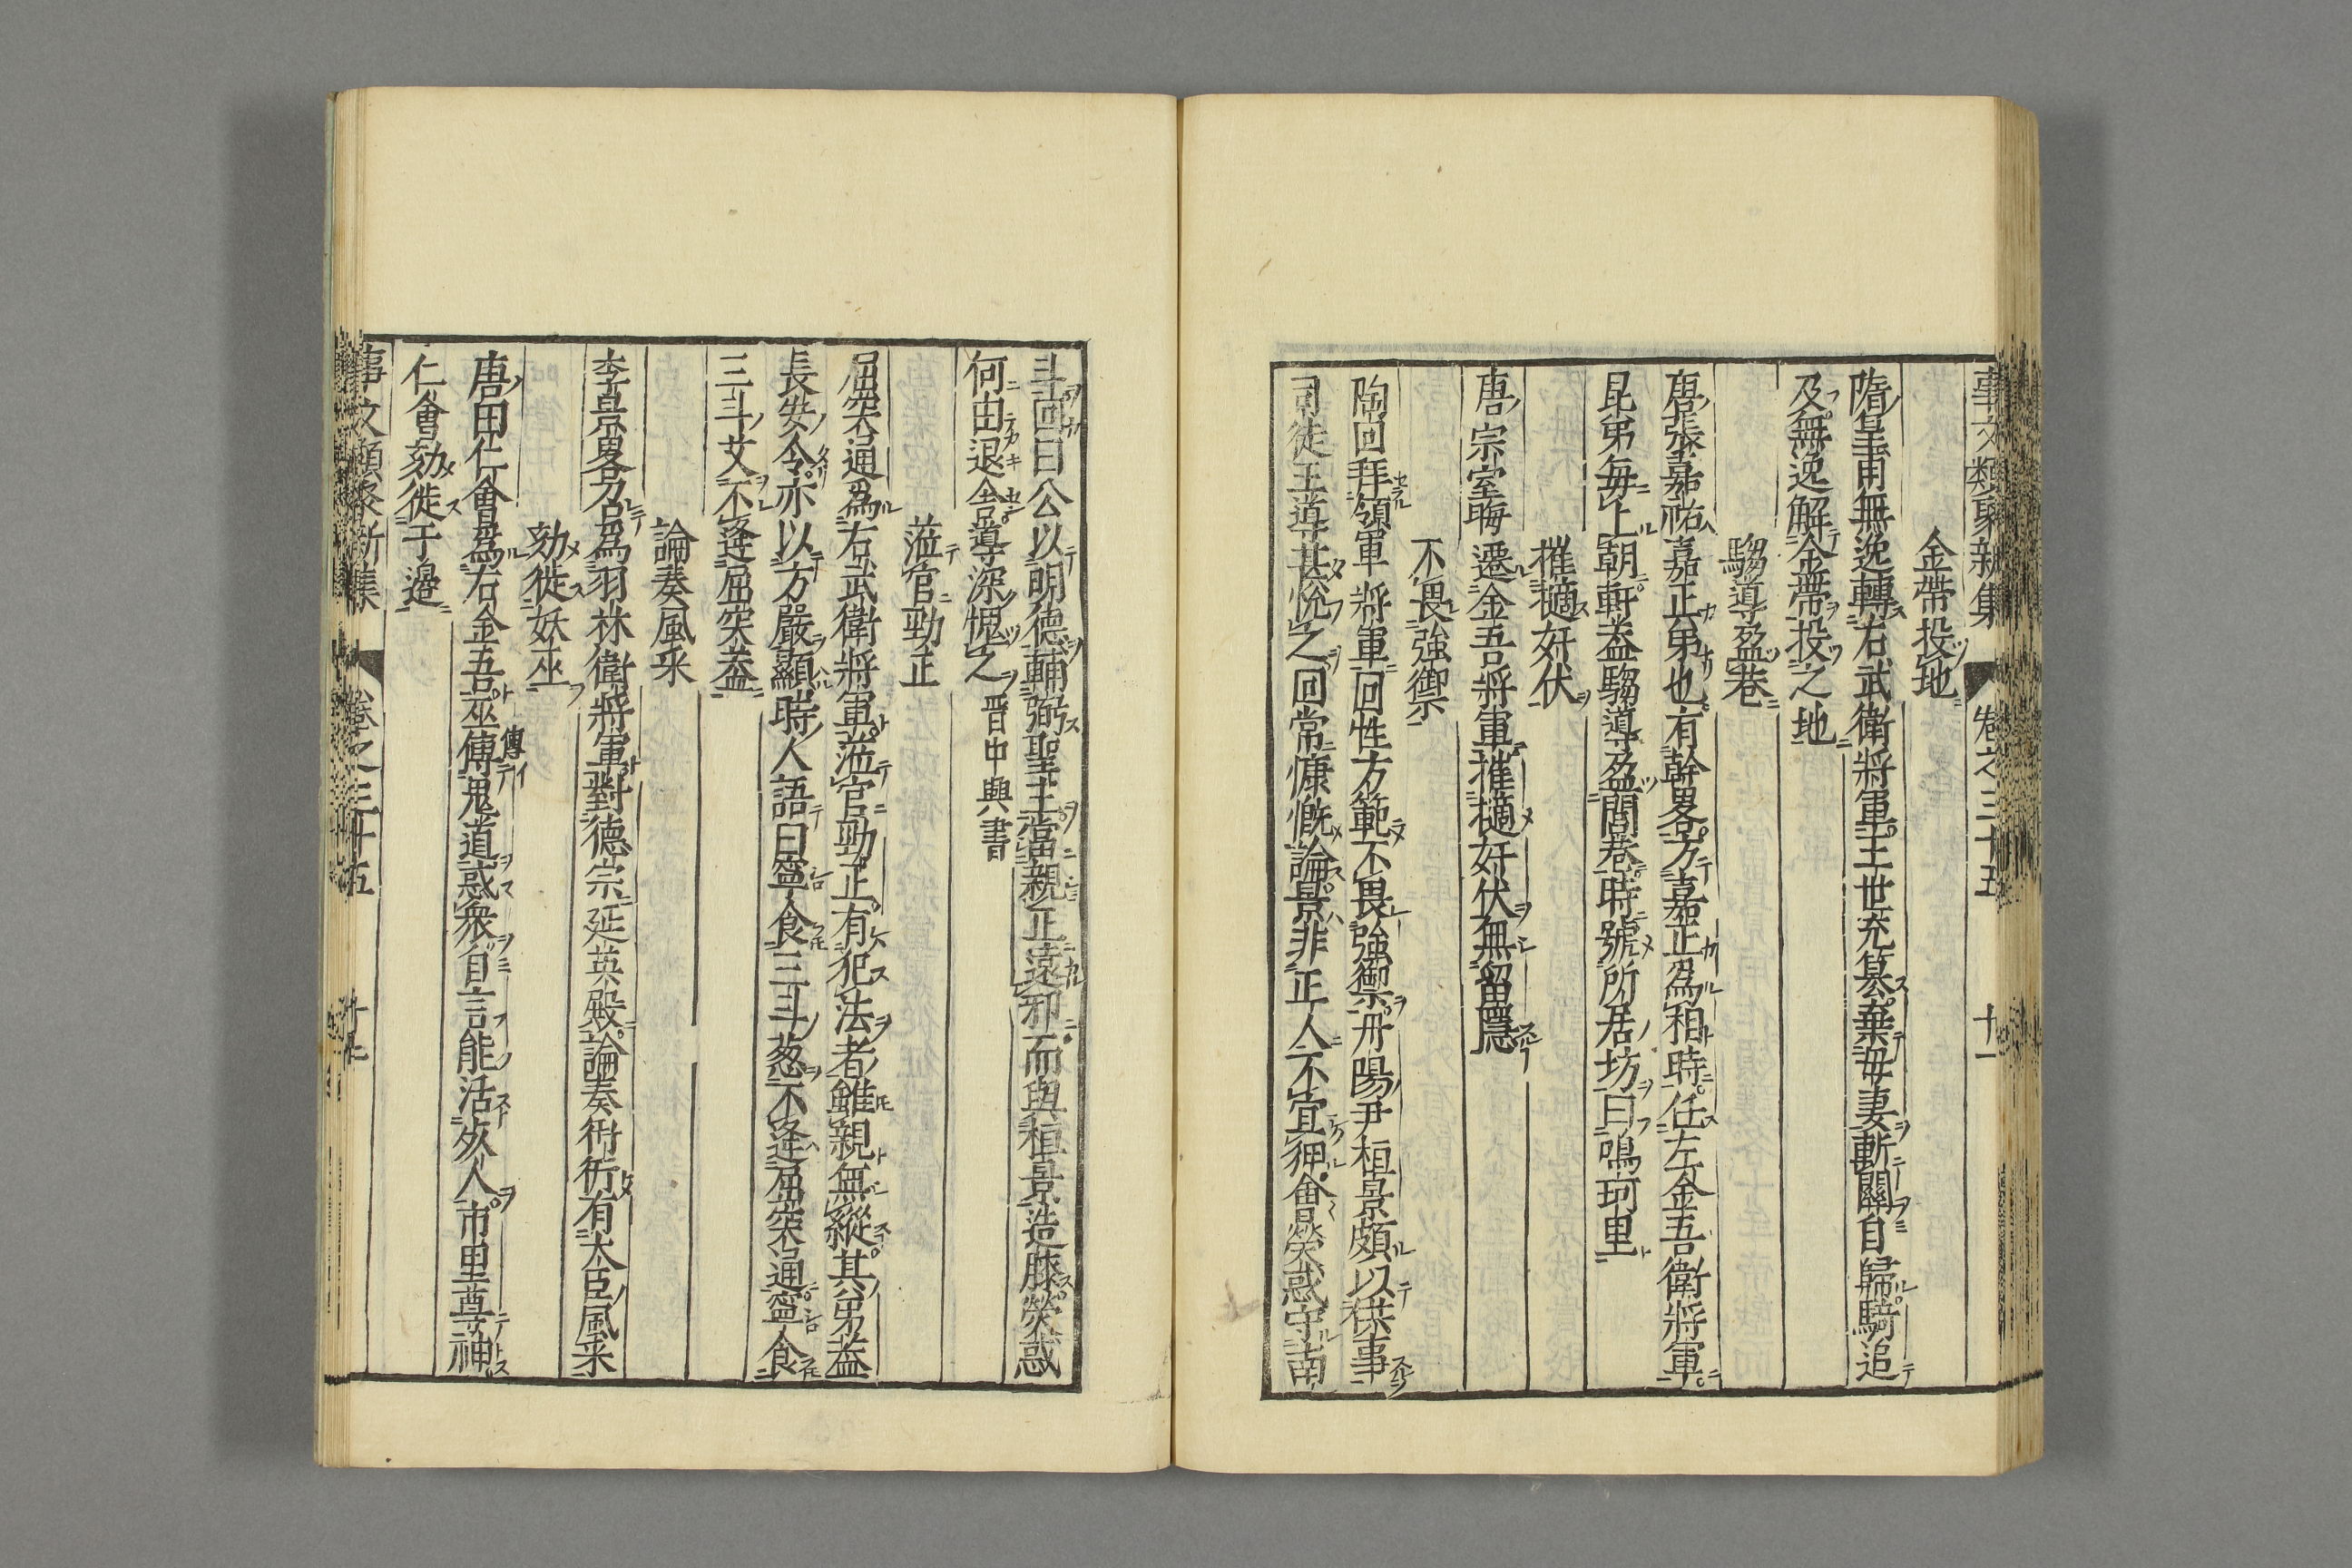 事文類聚新集 卷之三十五 十一
金帶投地
隋皇甫無逸轉右武衛將軍王世充篡棄母妻斬關自歸騎追
及無逸解金帶投之地
騶導盈巷
唐張嘉祐嘉正弟也有幹畧方嘉正爲相時任左金吾衛將軍
昆弟每上朝軒葢騶導盈閭巷時號所居坊曰鳴珂里
摧擿奸伏
唐宗室晦遷金吾將軍摧擿奸伏無留隱
不畏強禦
陶回拜領軍將軍回性方範不畏強禦丹陽尹桓景頗以佞事
司徒王導甚悅之回常慷慨論景非正人不宜狎會熒惑守南
斗回曰公以明德輔弼聖主當親正遠邪而與桓景造膝熒惑
何由退舍導深愧之 晋中興書
蒞官勁正
屈突通爲右武衛將軍蒞官勁正有犯法者雖親無縱其弟葢
長安令亦以方嚴顯時人語曰寧食三斗葱不逢屈突通寧食
三斗艾不逢屈突葢
論奏風采
李景畧召爲羽林衛將軍對德宗延英殿論奏衎衎有大臣風采
劾徙妖巫
唐田仁會爲右金吾巫傳鬼道惑衆自言能活死人市里尊神
傳イ
仁會劾徙于邉
事文類聚新集 卷之三十五